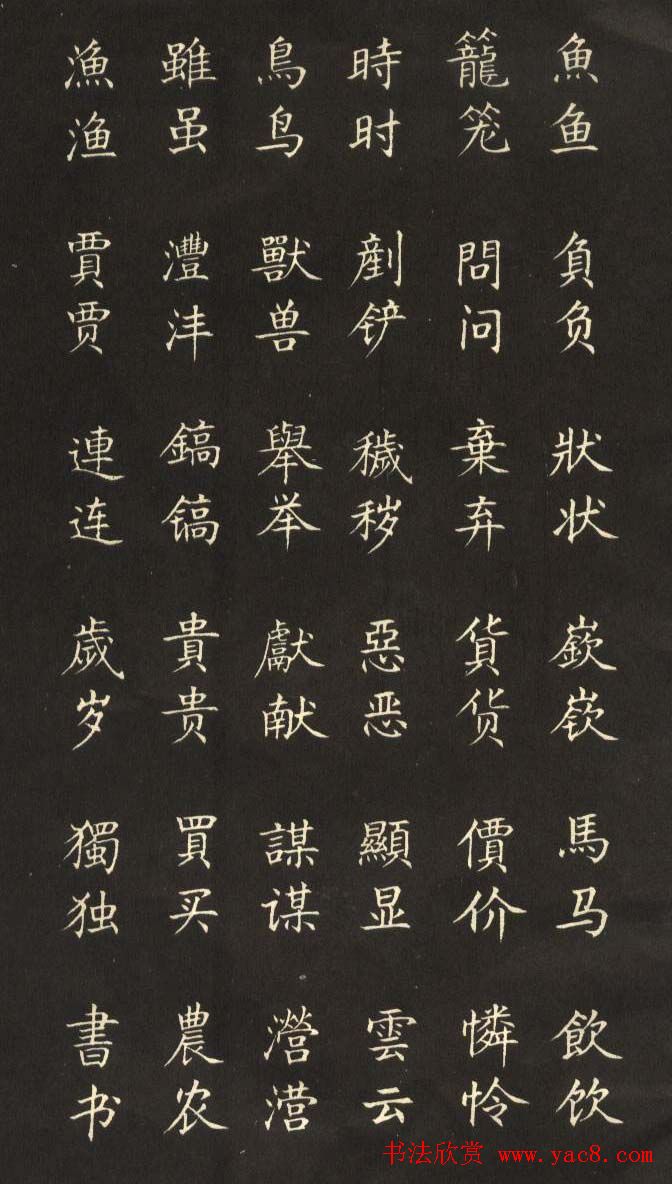 魚鱼負负狀状嶔嵚馬马飲饮
籠笼問问棄弃貨货價价憐怜
時时剷铲穢秽惡恶顯显雲云
鳥鸟獸兽舉举獻献謀谋瀯
雖虽灃沣鎬镐貴贵買买農农
漁渔賈贾連连歲岁獨独書书
书法欣赏 www.yac8.com